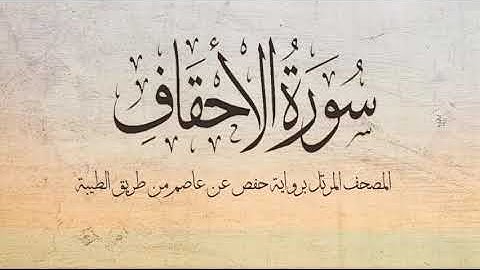 سُورَةُ الأَحْقَافِ
المصحف المرتل برواية حفص عن عاصم من طريق الطيبة